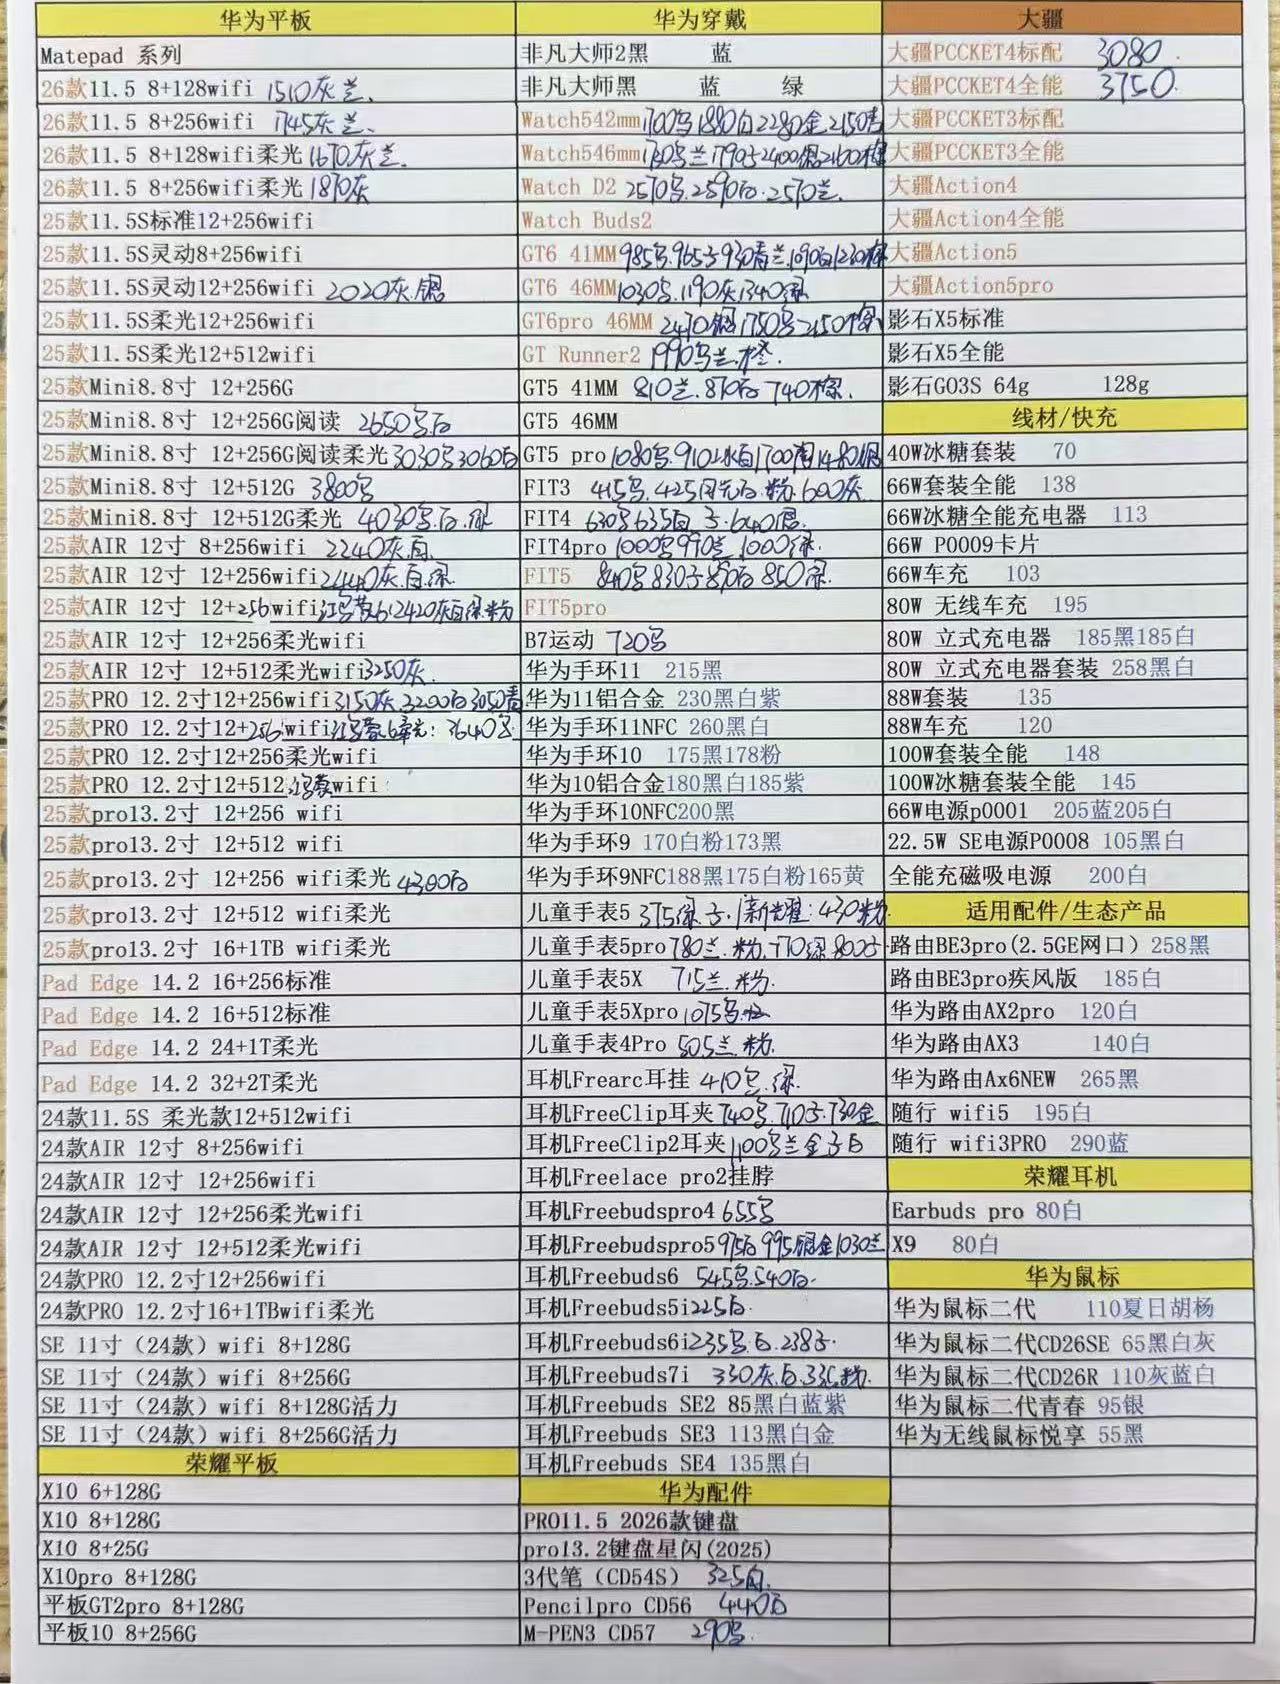 华为平板
Matepad 系列
26款11.5 8+128wifi 1510灰兰.
26款11.5 8+256wifi 1745灰兰.
26款11.5 8+128wifi柔光1670灰兰.
26款11.5 8+256wifi柔光1870灰
25款11.5S标准12+256wifi
25款11.5S灵动8+256wifi
25款11.5S灵动12+256wifi 2020灰.银
25款11.5S柔光12+256wifi
25款11.5S柔光12+512wifi
25款Mini8.8寸 12+256G
25款Mini8.8寸 12+256G阅读 2650乌白
25款Mini8.8寸 12+256G阅读柔光3030乌3060白
25款Mini8.8寸 12+512G 3800乌
25款Mini8.8寸 12+512G柔光 4030乌.白.绿
25款AIR 12寸 8+256wifi 2240灰.白.
25款AIR 12寸 12+256wifi2440灰.白.绿.
25款AIR 12寸 12+256wifi鸿蒙6:2420灰白绿.粉
25款AIR 12寸 12+256柔光wifi
25款AIR 12寸 12+512柔光wifi3250灰.
25款PRO 12.2寸12+256wifi3150灰.3200白3050青
25款PRO 12.2寸12+256wifi鸿蒙6柔光: 3640乌
25款PRO 12.2寸12+256柔光wifi
25款PRO 12.2寸12+512鸿蒙wifi
25款pro13.2寸 12+256 wifi
25款pro13.2寸 12+512 wifi
25款pro13.2寸 12+256 wifi柔光4300白
25款pro13.2寸 12+512 wifi柔光
25款pro13.2寸 16+1TB wifi柔光
Pad Edge 14.2 16+256标准
Pad Edge 14.2 16+512标准
Pad Edge 14.2 24+1T柔光
Pad Edge 14.2 32+2T柔光
24款11.5S 柔光款12+512wifi
24款AIR 12寸 8+256wifi
24款AIR 12寸 12+256wifi
24款AIR 12寸 12+256柔光wifi
24款AIR 12寸 12+512柔光wifi
24款PRO 12.2寸12+256wifi
24款PRO 12.2寸16+1TBwifi柔光
SE 11寸（24款）wifi 8+128G
SE 11寸（24款）wifi 8+256G
SE 11寸（24款）wifi 8+128G活力
SE 11寸（24款）wifi 8+256G活力
荣耀平板
X10 6+128G
X10 8+128G
X10 8+25G
X10pro 8+128G
平板GT2pro 8+128G
平板10 8+256G
华为穿戴
非凡大师2黑 蓝
非凡大师黑 蓝 绿
Watch542mm1700乌1880白2280金2150青
Watch546mm1730乌兰1790紫2400银2160棕
Watch D2 2570乌.2590白.2570兰.
Watch Buds2
GT6 41MM985乌.965紫930青兰.1090白1230棕
GT6 46MM1030乌.1190灰1340绿
GT6pro 46MM 2470银1750乌2150棕
GT Runner2 1990乌兰.橙.
GT5 41MM 810兰.870白 740棕.
GT5 46MM
GT5 pro1080乌.910冰白1700陶1480银
FIT3 415乌.425月光白.粉.600灰.
FIT4 630乌635白 紫.640银.
FIT4pro 1000乌990兰.1000绿.
FIT5 840乌830紫890白850绿.
FIT5pro
B7运动 720乌
华为手环11 215黑
华为11铝合金 230黑白紫
华为手环11NFC 260黑白
华为手环10 175黑178粉
华为10铝合金180黑白185紫
华为手环10NFC200黑
华为手环9 170白粉173黑
华为手环9NFC188黑175白粉165黄
儿童手表5 375绿.紫.新耀:430粉
儿童手表5pro780兰.粉.770绿800紫
儿童手表5X 715兰.粉.
儿童手表5Xpro1075乌.
儿童手表4Pro 505兰.粉.
耳机Frearc耳挂 410乌.绿.
耳机FreeClip耳夹740乌.710紫.730金
耳机FreeClip2耳夹1100乌兰金紫白
耳机Freelace pro2挂脖
耳机Freebudspro4655乌
耳机Freebudspro5975白995银金1030兰
耳机Freebuds6 545乌.540白.
耳机Freebuds5i225白
耳机Freebuds6i235乌.白.238紫.
耳机Freebuds7i 330灰.白.335粉.
耳机Freebuds SE2 85黑白蓝紫
耳机Freebuds SE3 113黑白金
耳机Freebuds SE4 135黑白
华为配件
PRO11.5 2026款键盘
pro13.2键盘星闪(2025)
3代笔（CD54S） 325白.
Pencilpro CD56 440白
M-PEN3 CD57 290乌.
大疆
大疆PCCKET4标配 3080.
大疆PCCKET4全能 3750.
大疆PCCKET3标配
大疆PCCKET3全能
大疆Action4
大疆Action4全能
大疆Action5
大疆Action5pro
影石X5标准
影石X5全能
影石GO3S 64g 128g
线材/快充
40W冰糖套装 70
66W套装全能 138
66W冰糖全能充电器 113
66W P0009卡片
66W车充 103
80W 无线车充 195
80W 立式充电器 185黑185白
80W 立式充电器套装 258黑白
88W套装 135
88W车充 120
100W套装全能 148
100W冰糖套装全能 145
66W电源p0001 205蓝205白
22.5W SE电源P0008 105黑白
全能充磁吸电源 200白
适用配件/生态产品
路由BE3pro(2.5GE网口）258黑
路由BE3pro疾风版 185白
华为路由AX2pro 120白
华为路由AX3 140白
华为路由Ax6NEW 265黑
随行 wifi5 195白
随行 wifi3PRO 290蓝
荣耀耳机
Earbuds pro 80白
X9 80白
华为鼠标
华为鼠标二代 110夏日胡杨
华为鼠标二代CD26SE 65黑白灰
华为鼠标二代CD26R 110灰蓝白
华为鼠标二代青春 95银
华为无线鼠标悦享 55黑